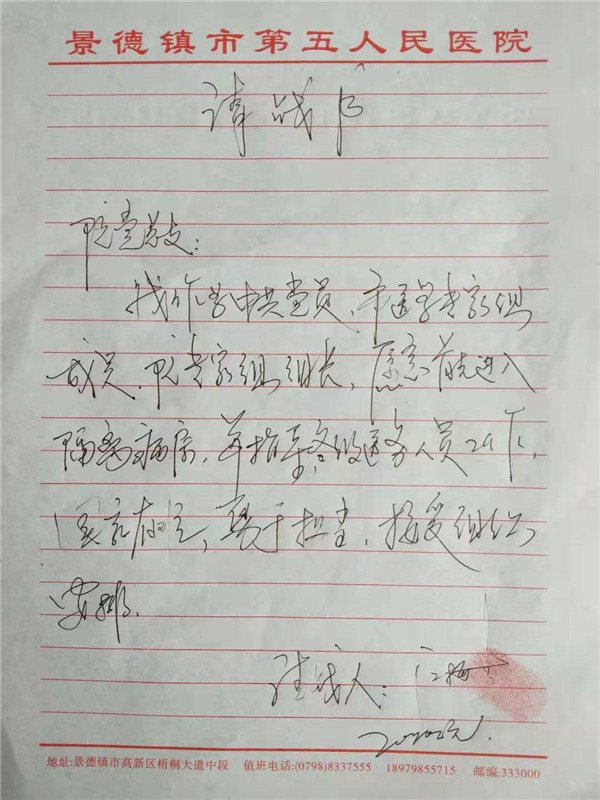 景德镇市第五人民医院
请战书
院党总支:
我作为中共党员、市医学专家组
成员、院专家组组长,愿意首先进入
隔离病房,并指导各级医务人员工作,
国家有难,勇于担当,接受组织
安排。
请战人:江梅
2020.
地址:景德镇市高新区梧桐大道中段 值班电话:(0798)8337555 18979855715 邮编:333000